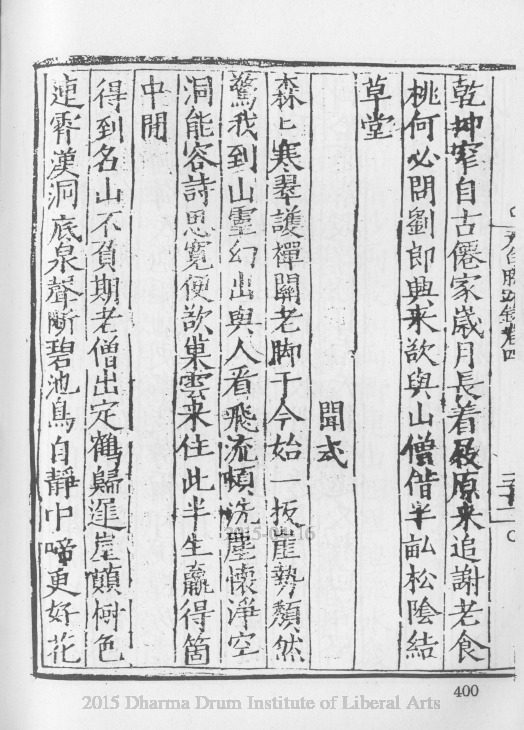 乾坤窄自古僊家歲月長着屐原来追謝老食
桃何必問劉郎興来欲與山僧偕半畆松陰結
草堂
聞式
森〻寒翠護禪關老脚于今始一扳崖勢頽然
驚我到山靈幻出與人看飛流頓洗塵懷淨空
洞能容詩思寛便欲巢雲来住此半生贏得箇
中閒
得到名山不負期老僧出定鶴歸遲崖顛樹色
連霄漢洞底泉聲斷碧池鳥自靜中啼更好花
400
2015-04-16
2015 Dharma Drum Institute of Liberal Arts